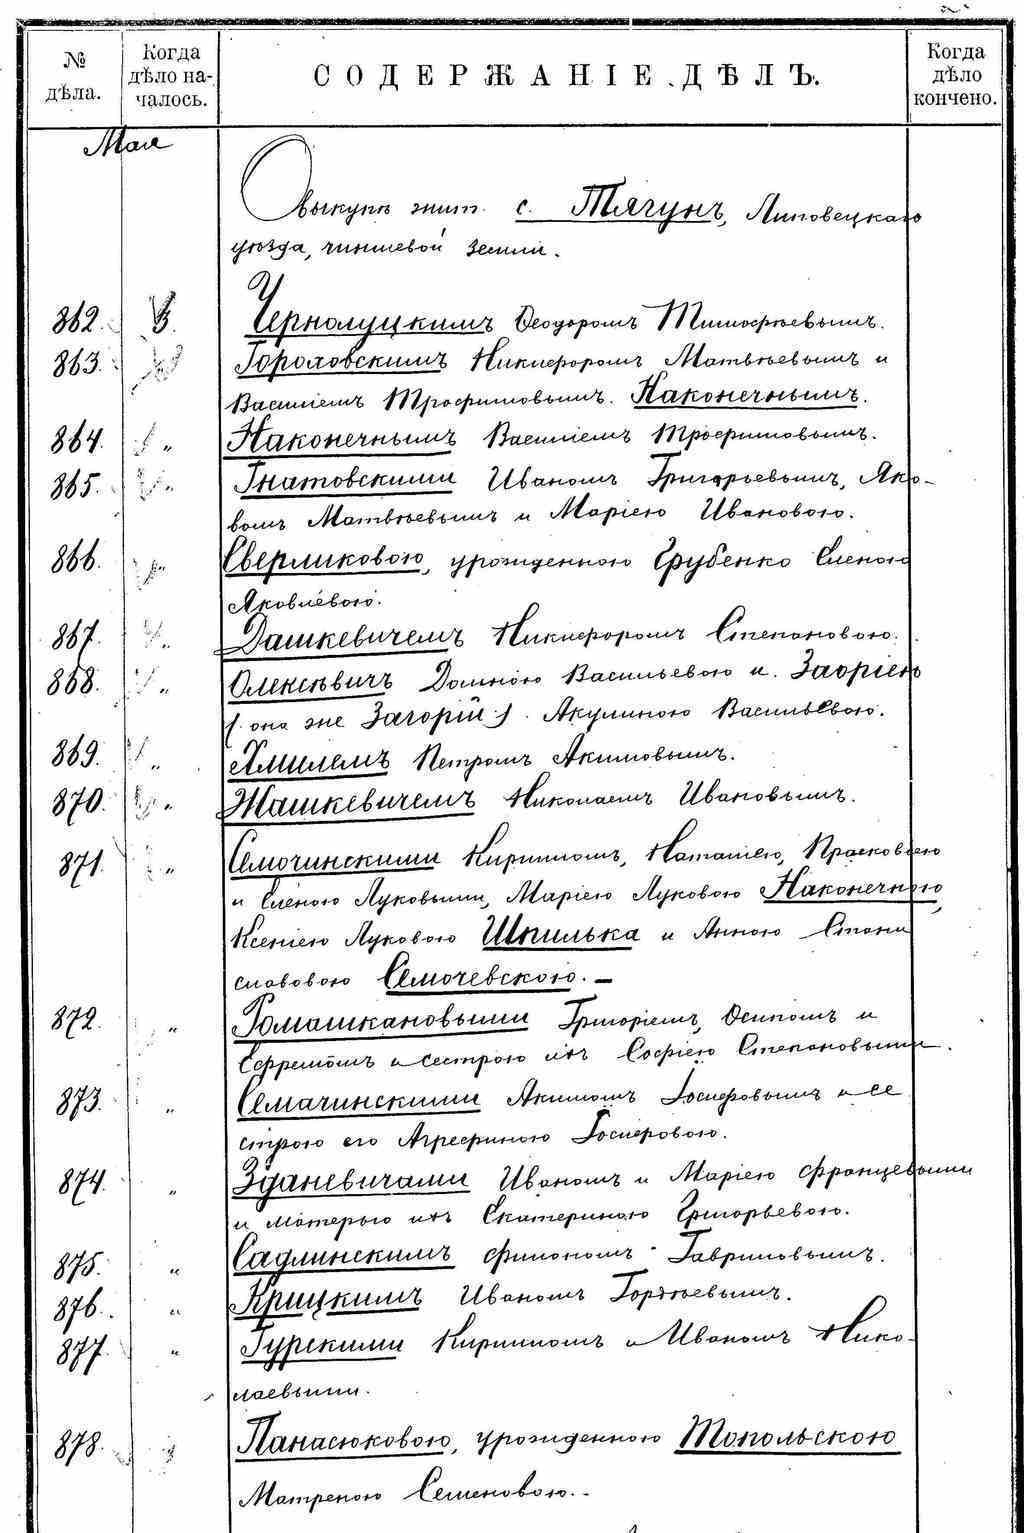 № дѣла.
Когда дѣло началось.
СОДЕРЖАНІЕ ДѢЛЪ.
Когда дѣло кончено.
Мая
О выкупѣ жит. с. Тягунъ, Липовецкаго
уѣзда, чиншевой земли.
862. 3. Чернолуцкимъ Ѳеодоромъ Тимофѣевымъ.
863. Гороховскимъ Никифоромъ Матвѣевымъ и
Василіемъ Трофимовымъ. Наконечнымъ.
864. „ Наконечнымъ Василіемъ Трофимовымъ.
865. „ Гнатовскими Иваномъ Григорьевымъ, Яко-
вомъ Матвѣевымъ и Маріею Ивановою.
866. „ Сверликовою, урожденною Грубенко Еленою
Яковлевою.
867. „ Дашкевичемъ Никифоромъ Степановою.
868. „ Олексѣвичъ Домною Васильевою и Заоріею
(она же Загорій) Акулиною Васильевою.
869. „ Хмилемъ Петромъ Акимовымъ.
870. „ Жашкевичемъ Николаемъ Ивановымъ.
871. „ Семочинскими Кирилломъ, Наталіею, Прасковіею
и Еленою Луковыми, Маріею Луковою Наконечною,
Ксеніею Луковою Шпилька и Анною Стани
славовою Семочевскою. —
872. „ Ромашкановыми Григоріемъ, Осипомъ и
Ефремомъ и сестрою ихъ Софіею Степановыми.
873. „ Семачинскими Акимомъ Іосифовымъ и се
строю его Агрефиною Іосифовою.
874. „ Зданевичами Иваномъ и Маріею Францевыми
и матерью ихъ Екатериною Григорьевою.
875. „ Садлинскимъ Филономъ Гавриловымъ.
876. „ Крицкимъ Иваномъ Гордѣевымъ.
877. „ Гурскими Кирилломъ и Иваномъ Нико-
лаевыми.
878. „ Панасюковою, урожденною Топольскою
Матреною Семеновою.